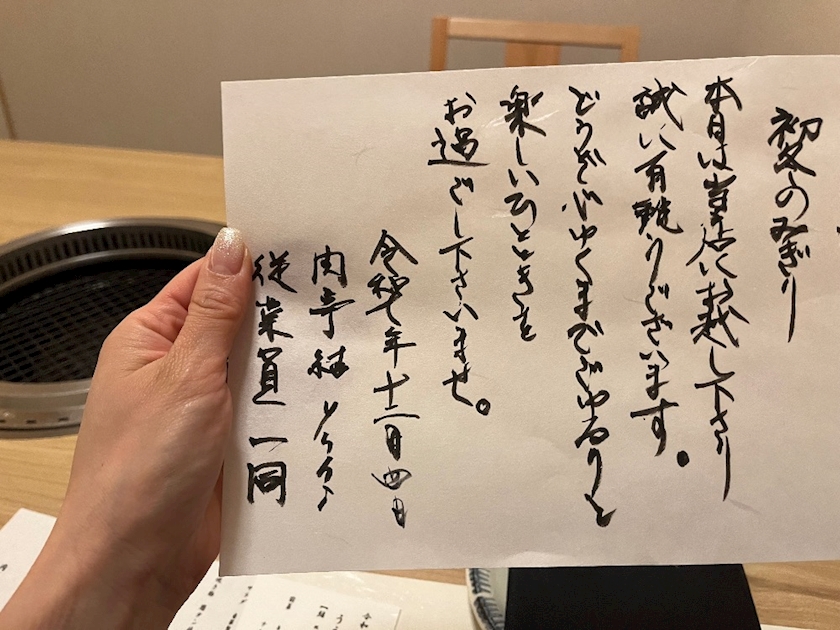 初冬のみぎり
本日は当店にお越し下さり
誠に有難うございます。
どうぞ心ゆくまでごゆるりと
楽しいひとときを
お過ごし下さいませ。
令和七年十二月四日
肉亭
従業員一同